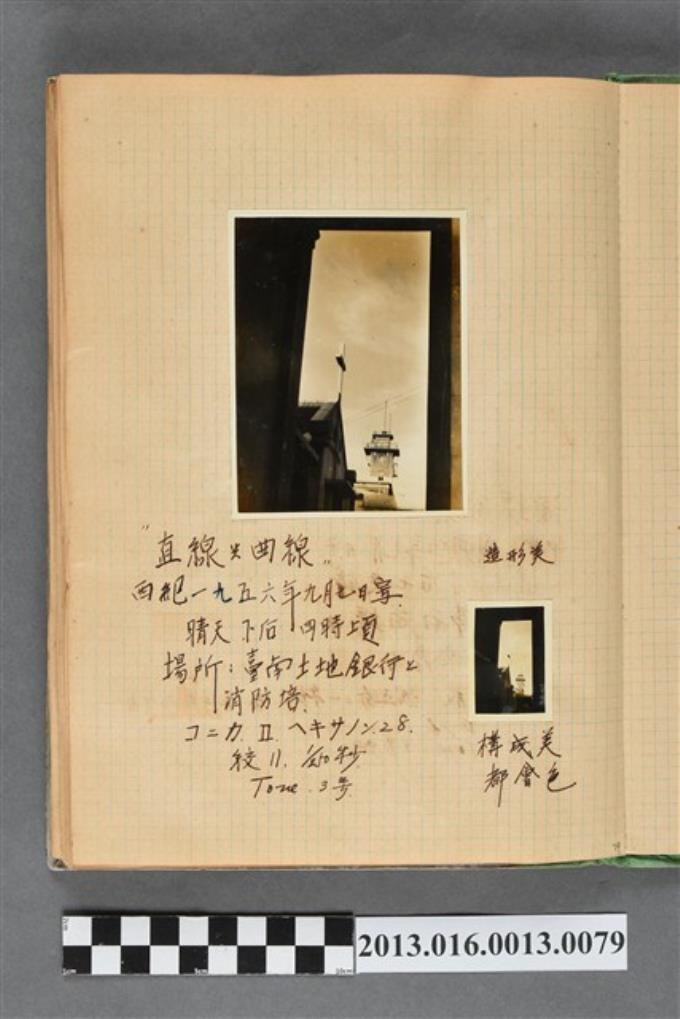 "直線と曲線"
西紀一九五六年九月七日寫.
晴天 下后 四時頃
場所:臺南土地銀行と
消防塔.
コニカ. Ⅱ. ヘキサノン. 2.8.
絞 11.
Tone. 3号.
造形美
構成美
都會色
79
2013.016.0013.0079